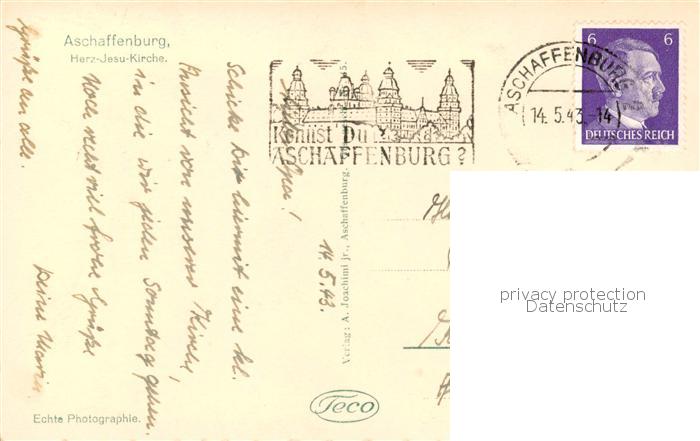 Aschaffenburg,
Herz-Jesu-Kirche.
14.5.43.
Schicke Dir hiermit eine kl.
Ansicht von unserer Kirche,
in die wir jeden Sonntag gehen.
Noch recht viel frohe Grüße
Deine Maria.
Grüße an alle.
Echte Photographie.
Verlag: A. Joachimi jr., Aschaffenburg.
Teco
Kennst Du
ASCHAFFENBURG?
ASCHAFFENBURG
14.5.43.-14
6 6
DEUTSCHES REICH
privacy protection
Datenschutz